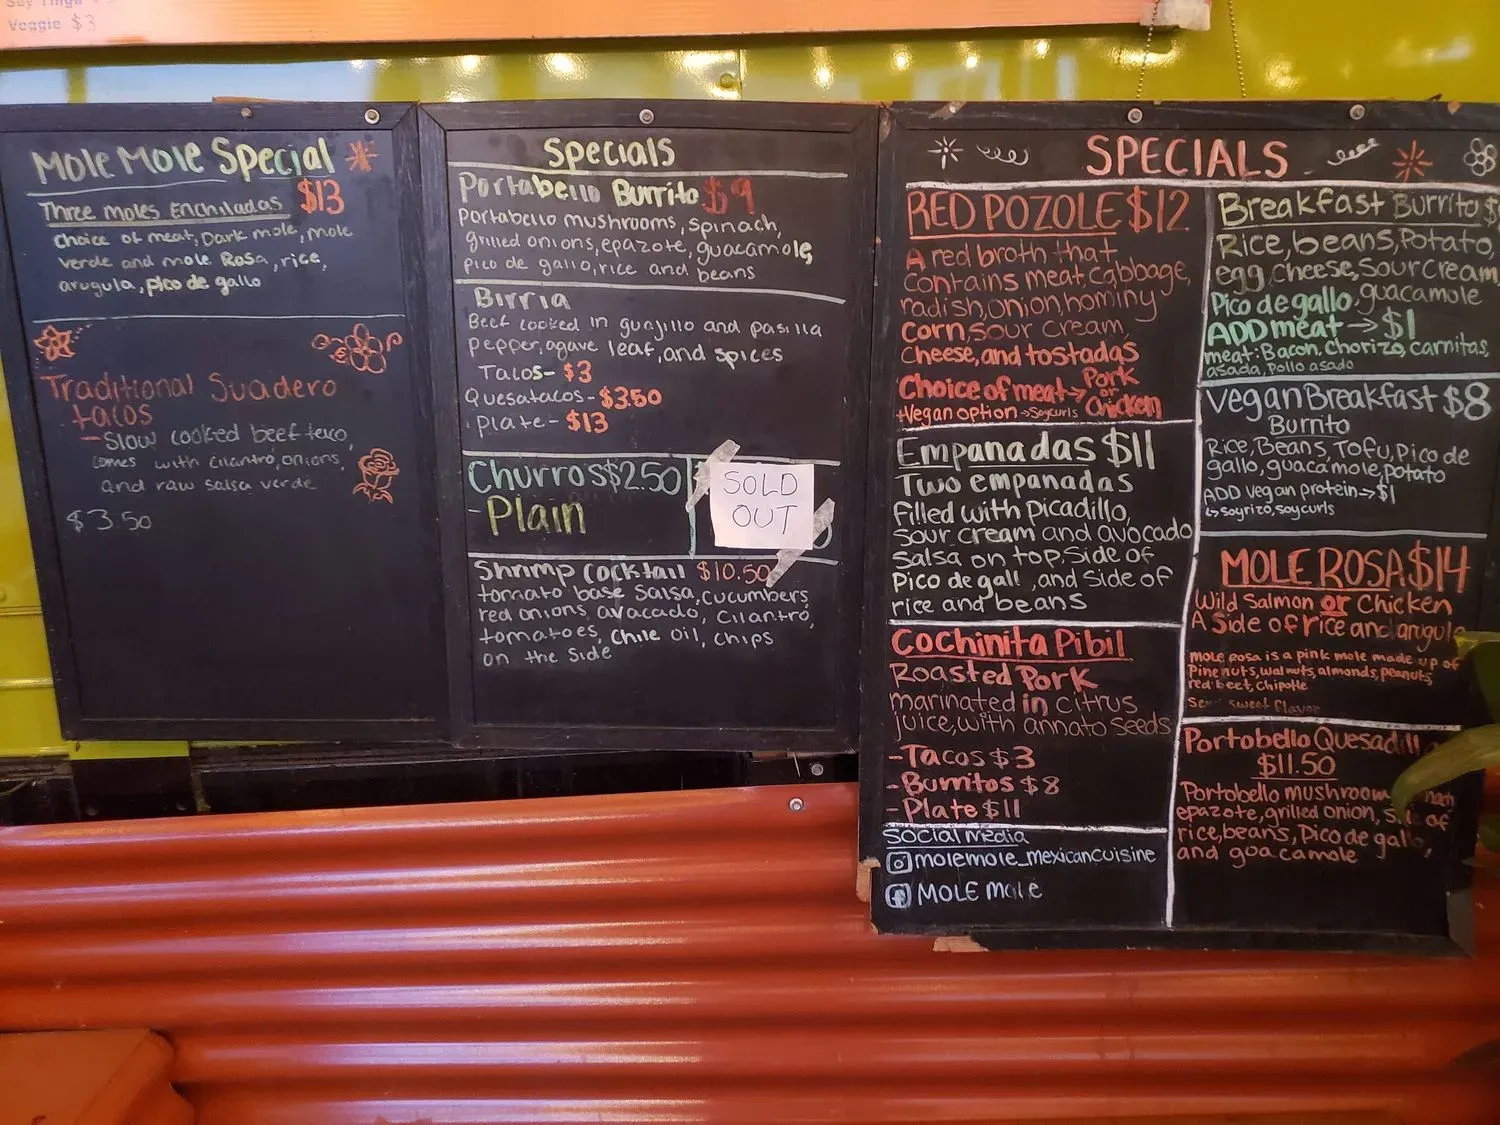 Veggie $3
Mole Mole Special
Three moles Enchiladas $13
choice of meat, Dark mole, mole
verde and mole Rosa, rice,
arugula, pico de gallo
Traditional Suadero
tacos
- Slow cooked beef taco,
comes with cilantro, onions,
and raw salsa verde
$3.50
Specials
Portabello Burrito $9
portabello mushrooms, spinach,
grilled onions, epazote, guacamole,
pico de gallo, rice and beans
Birria
Beef cooked in guajillo and pasilla
pepper, agave leaf, and spices
Tacos- $3
Quesatacos- $3.50
plate- $13
Churros $2.50
- Plain
SOLD
OUT
Shrimp cocktail $10.50
tomato base salsa, cucumbers,
red onions, avacado, cilantro,
tomatoes, chile oil, chips
on the side
SPECIALS
RED POZOLE $12
A red broth that
contains meat, cabbage,
radish, onion, hominy
corn, sour cream,
cheese, and tostadas
Choice of meat → Pork
or
Chicken
+Vegan option → Soycurls
Empanadas $11
Two empanadas
filled with picadillo,
sour cream and avocado
salsa on top, side of
Pico de gall , and side of
rice and beans
Cochinita Pibil
Roasted Pork
marinated in citrus
juice, with annato seeds
- Tacos $3
- Burritos $8
- Plate $11
Social Media
molemole_mexicancuisine
MOLE mole
Breakfast Burrito $
Rice, beans, Potato,
egg, cheese, Sour Cream
Pico de gallo, guacamole
ADD meat → $1
meat: Bacon, Chorizo, carnitas,
asada, Pollo asado
Vegan Breakfast $8
Burrito
Rice, Beans, Tofu, Pico de
gallo, guacamole, potato
ADD vegan protein → $1
↳ soyrizo, soycurls
MOLE ROSA $14
Wild Salmon or Chicken
A Side of rice and arugula
Mole rosa is a pink mole made up of
Pinenuts, walnuts, almonds, peanuts,
red beet, Chipotle
sweet flavor
Portobello Quesadilla
$11.50
Portobello mushroom,
epazote, grilled onion, of
rice, beans, Pico de gal ,
and guacamole